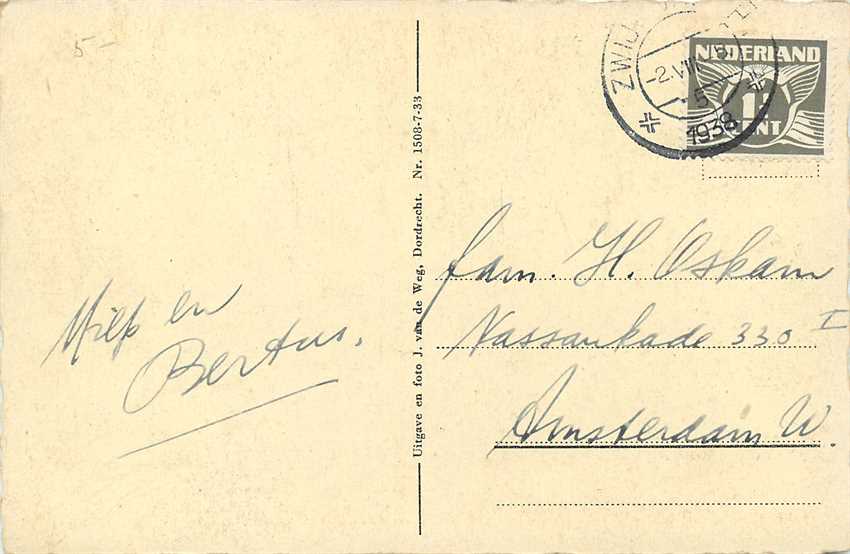 5-
NEDERLAND
1½
CENT
-2.VII
5
1938
Miep en
Bertus.
Uitgave en foto J. van de Weg, Dordrecht. Nr. 1508-7-33
fam. H. Oskam
Nassaukade 330 I
Amsterdam W.